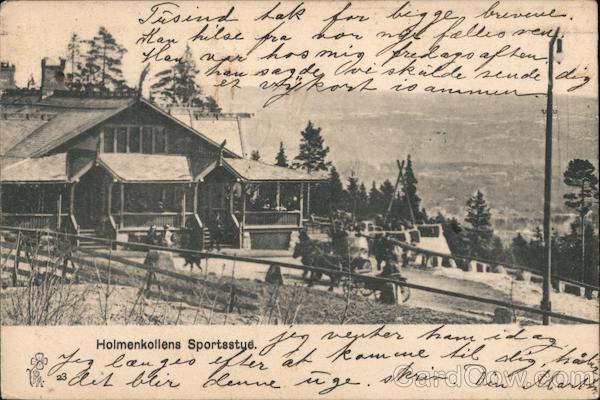 Tusind tak for begge brevene.
Kan hilse fra vor nye fælles ven.
Han var hos mig fredagsaften
han sagde vi skulde sende dig
et vykort isammen.
Holmenkollens Sportsstue.
jeg venter ham idag
Jeg længes efter at komme til dig, håber
23 det blir denne uge. skriv. Din Martin
CardCow.com